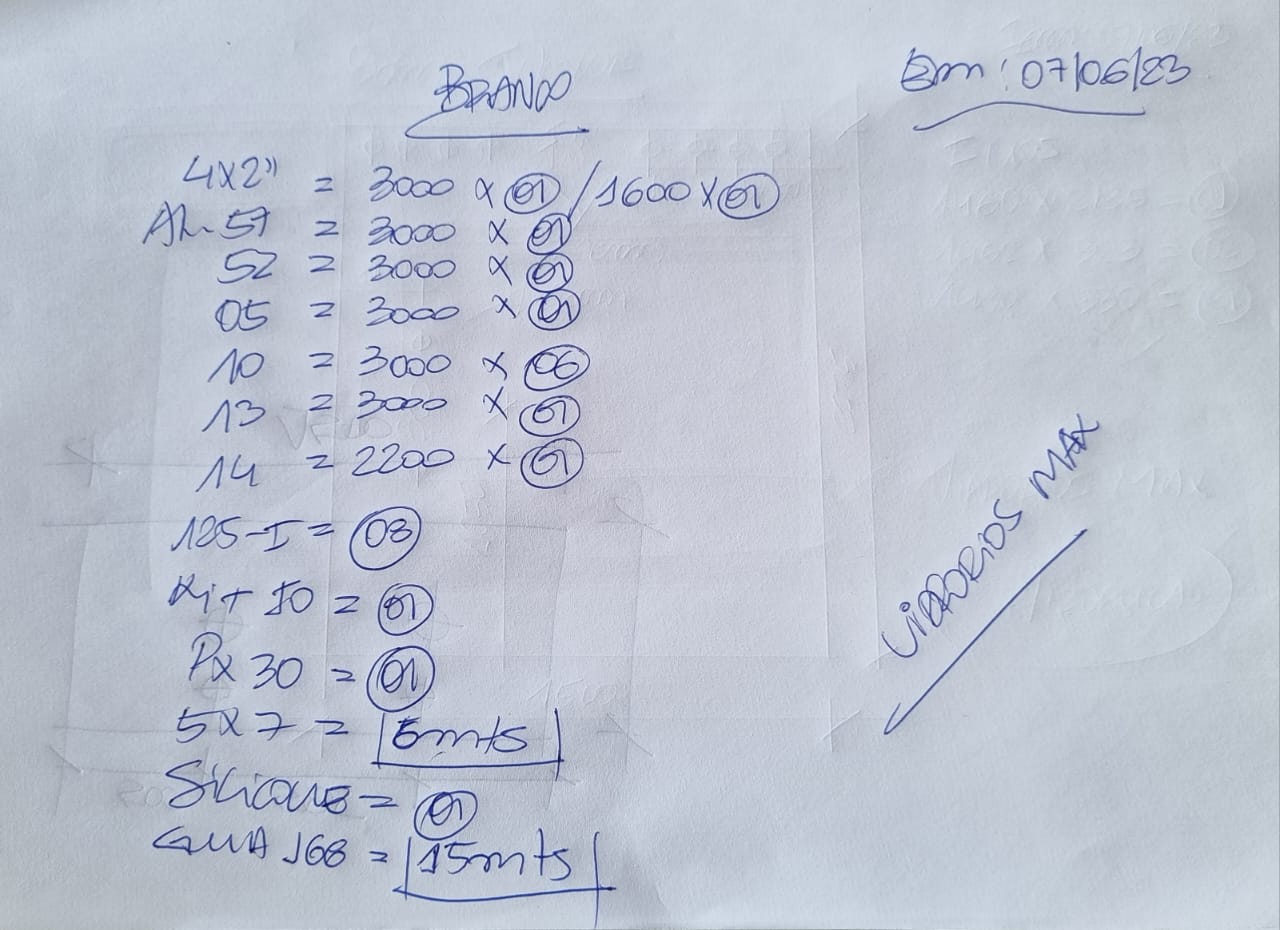 BRANCO
Em: 07/06/23
4x2" = 3000 x 01 / 1600 x 01
AL-57 = 3000 x 01
52 = 3000 x 01
05 = 3000 x 01
10 = 3000 x 06
13 = 3000 x 01
14 = 2200 x 01
125-I = 03
Kit I0 = 01
Px 30 = 01
5x7 = 6mts
Silicone = 01
GUIA J68 = 15mts
VIDRORIOS MAX